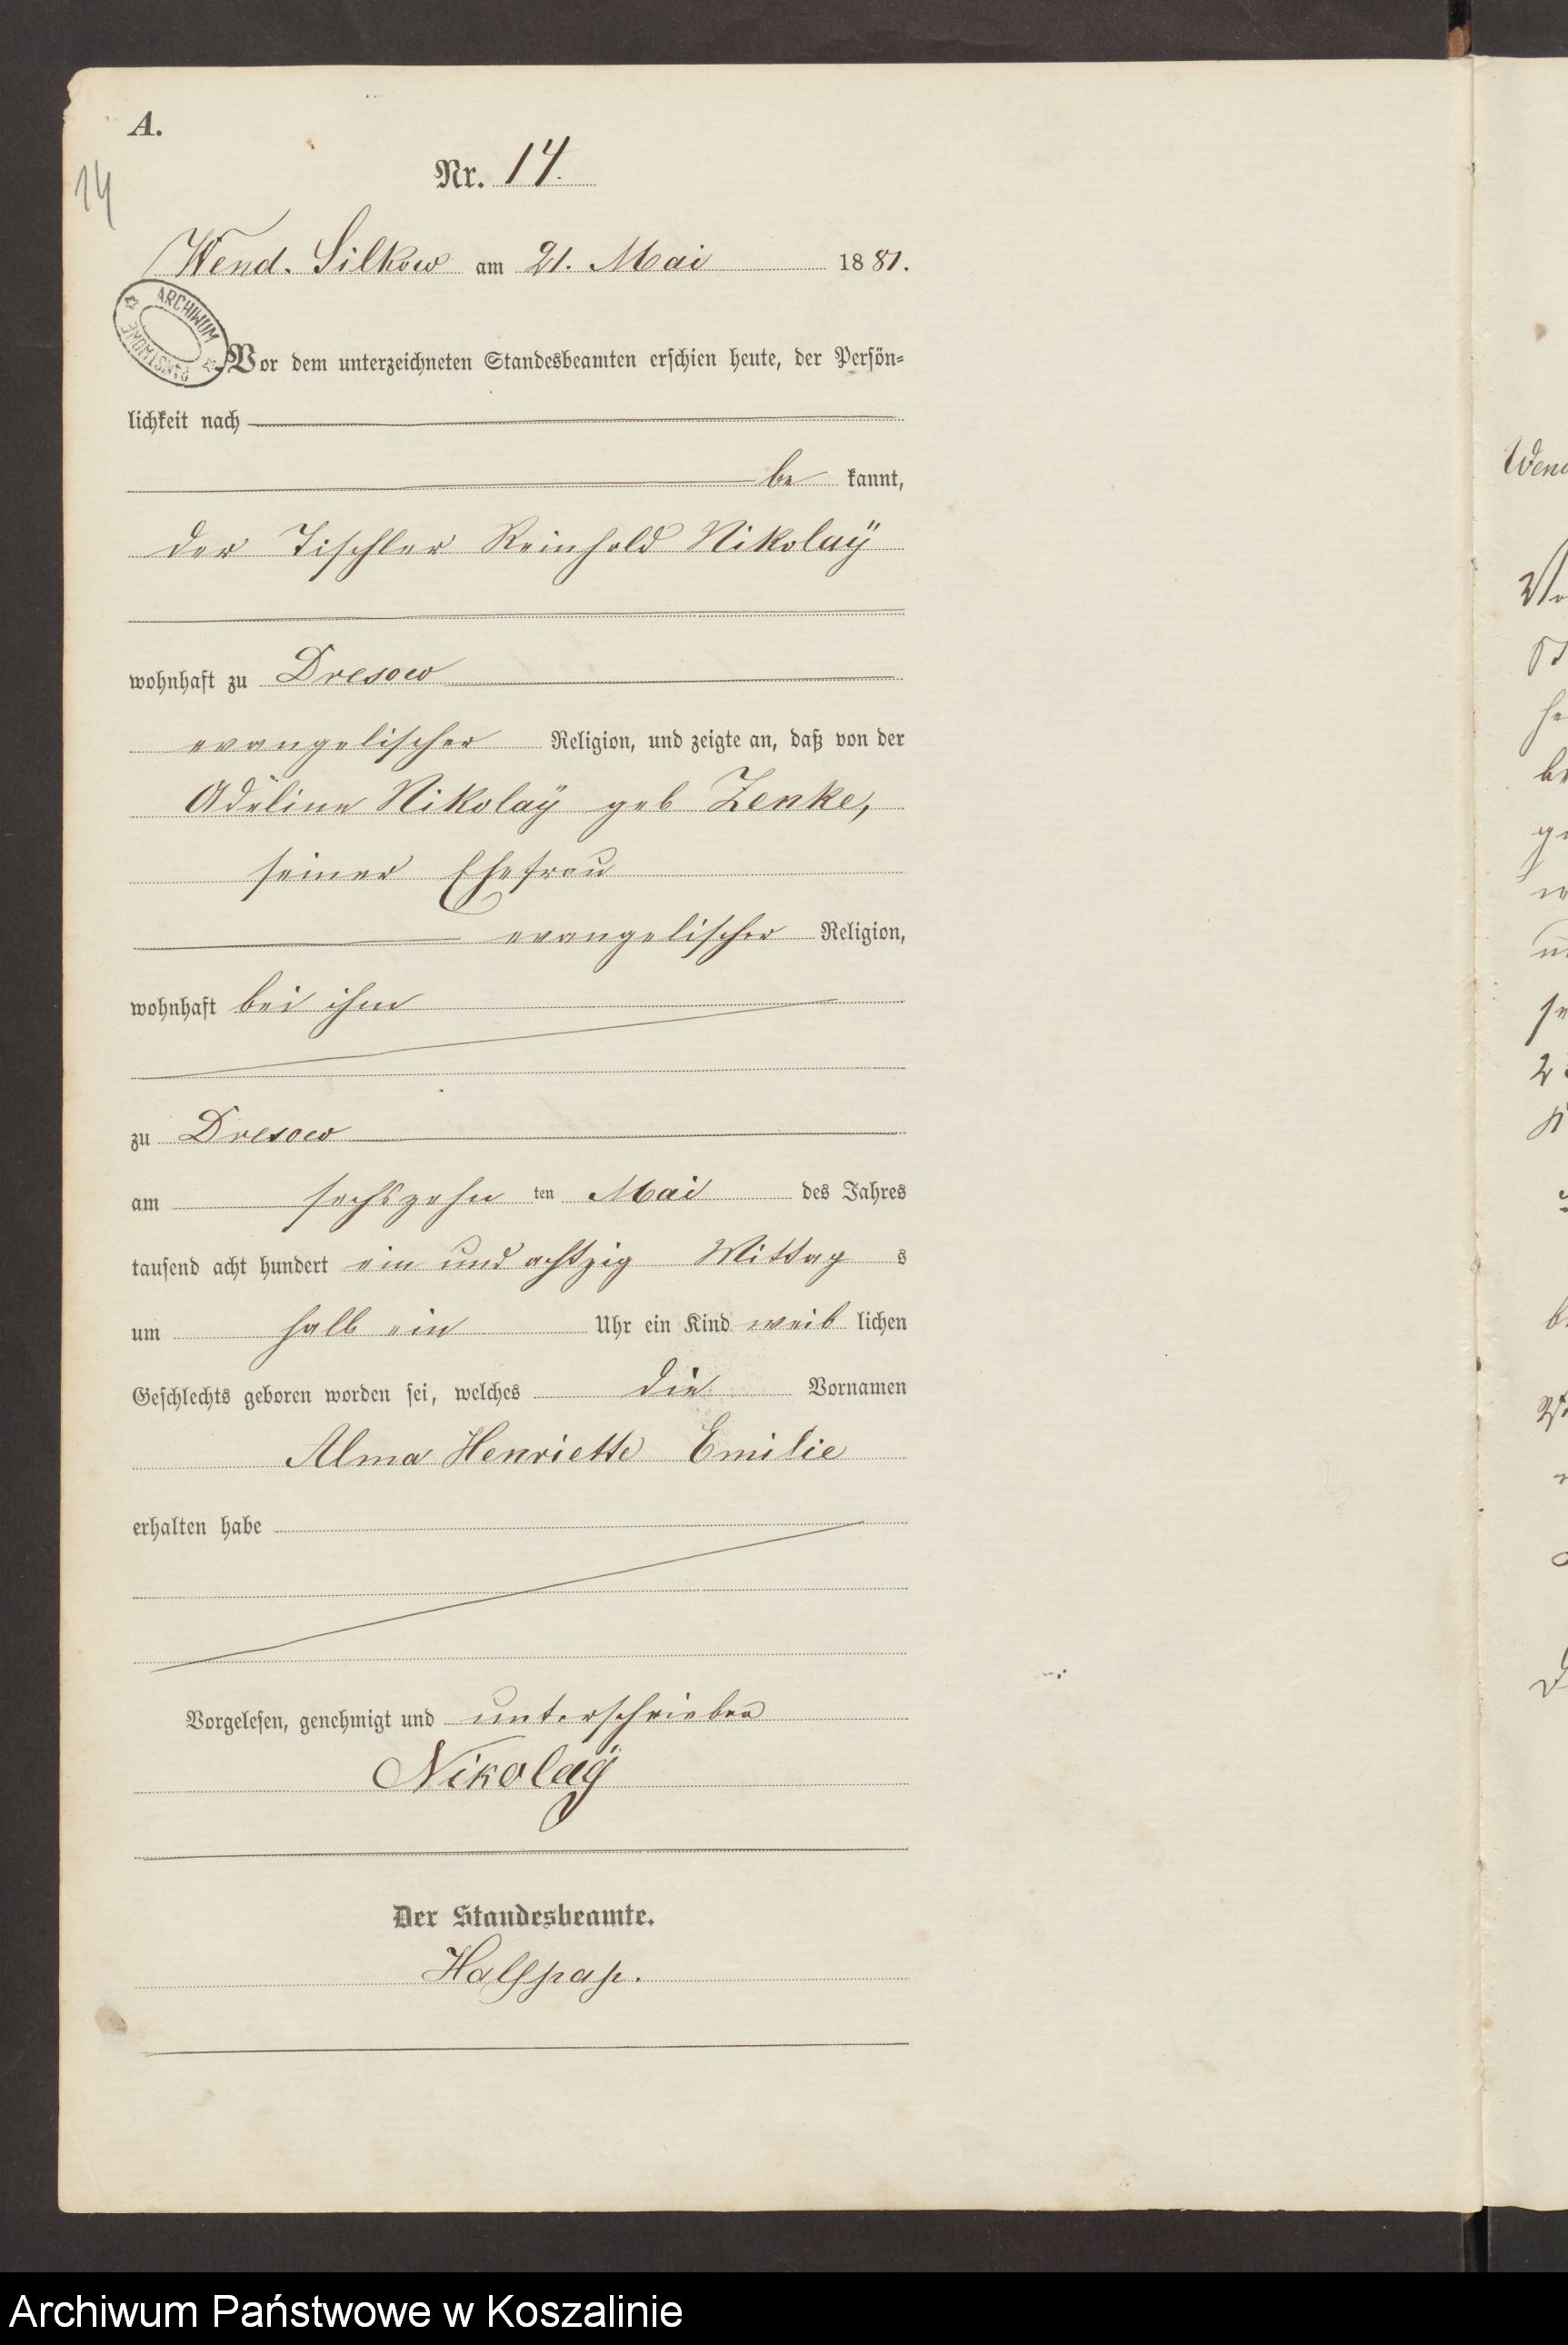 A.
14
Nr. 14.
Wend. Silkow am 21. Mai 1881.
ARCHIWUM PAŃSTWOWE
Vor dem unterzeichneten Standesbeamten erschien heute, der Persön=
lichkeit nach
be kannt,
der Tischler Reinhold Nikolaÿ
wohnhaft zu Dresow
evangelischer Religion, und zeigte an, daß von der
Adeline Nikolaÿ geb Zenke,
seiner Ehefrau
evangelischer Religion,
wohnhaft bei ihm
zu Dresow
am sechszehn ten Mai des Jahres
tausend acht hundert ein und achtzig Mittag s
um halb ein Uhr ein Kind weib lichen
Geschlechts geboren worden sei, welches die Vornamen
Alma Henriette Emilie
erhalten habe
Vorgelesen, genehmigt und unterschrieben
Nikolaÿ
Der Standesbeamte.
Halfpap.
Archiwum Państwowe w Koszalinie